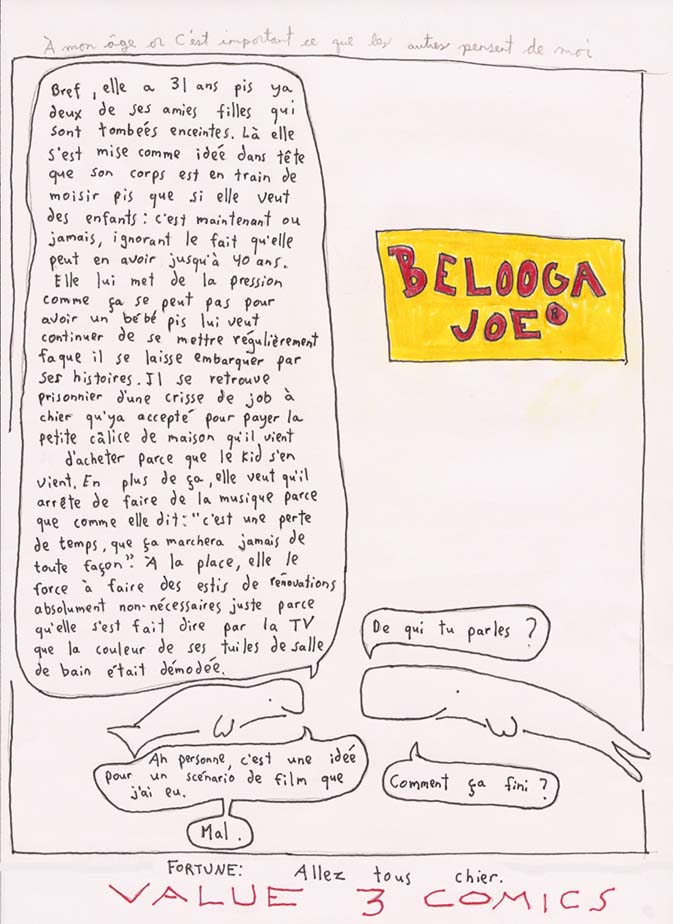 À mon âge où C'est important ce que les autres pensent de moi
Bref, elle a 31 ans pis ya
deux de ses amies filles qui
sont tombées enceintes. Là elle
s'est mise comme idée dans tête
que son corps est en train de
moisir pis que si elle veut
des enfants: c'est maintenant ou
jamais, ignorant le fait qu'elle
peut en avoir jusqu'à 40 ans.
Elle lui met de la pression
comme ça se peut pas pour
avoir un bébé pis lui veut
continuer de se mettre régulièrement
faque il se laisse embarquer par
ses histoires. Il se retrouve
prisonnier d'une crisse de job à
chier qu'ya accepté pour payer la
petite câlice de maison qu'il vient
d'acheter parce que le kid s'en
vient. En plus de ça, elle veut qu'il
arrête de faire de la musique parce
que comme elle dit: "c'est une perte
de temps, que ça marchera jamais de
toute façon". À la place, elle le
force à faire des estis de rénovations
absolument non-nécessaires juste parce
qu'elle s'est fait dire par la TV
que la couleur de ses tuiles de salle
de bain était démodée.
BELOOGA
JOE®
De qui tu parles ?
Ah personne, c'est une idée
pour un scénario de film que
j'ai eu.
Comment ça fini ?
Mal.
FORTUNE: Allez tous chier.
VALUE 3 COMICS